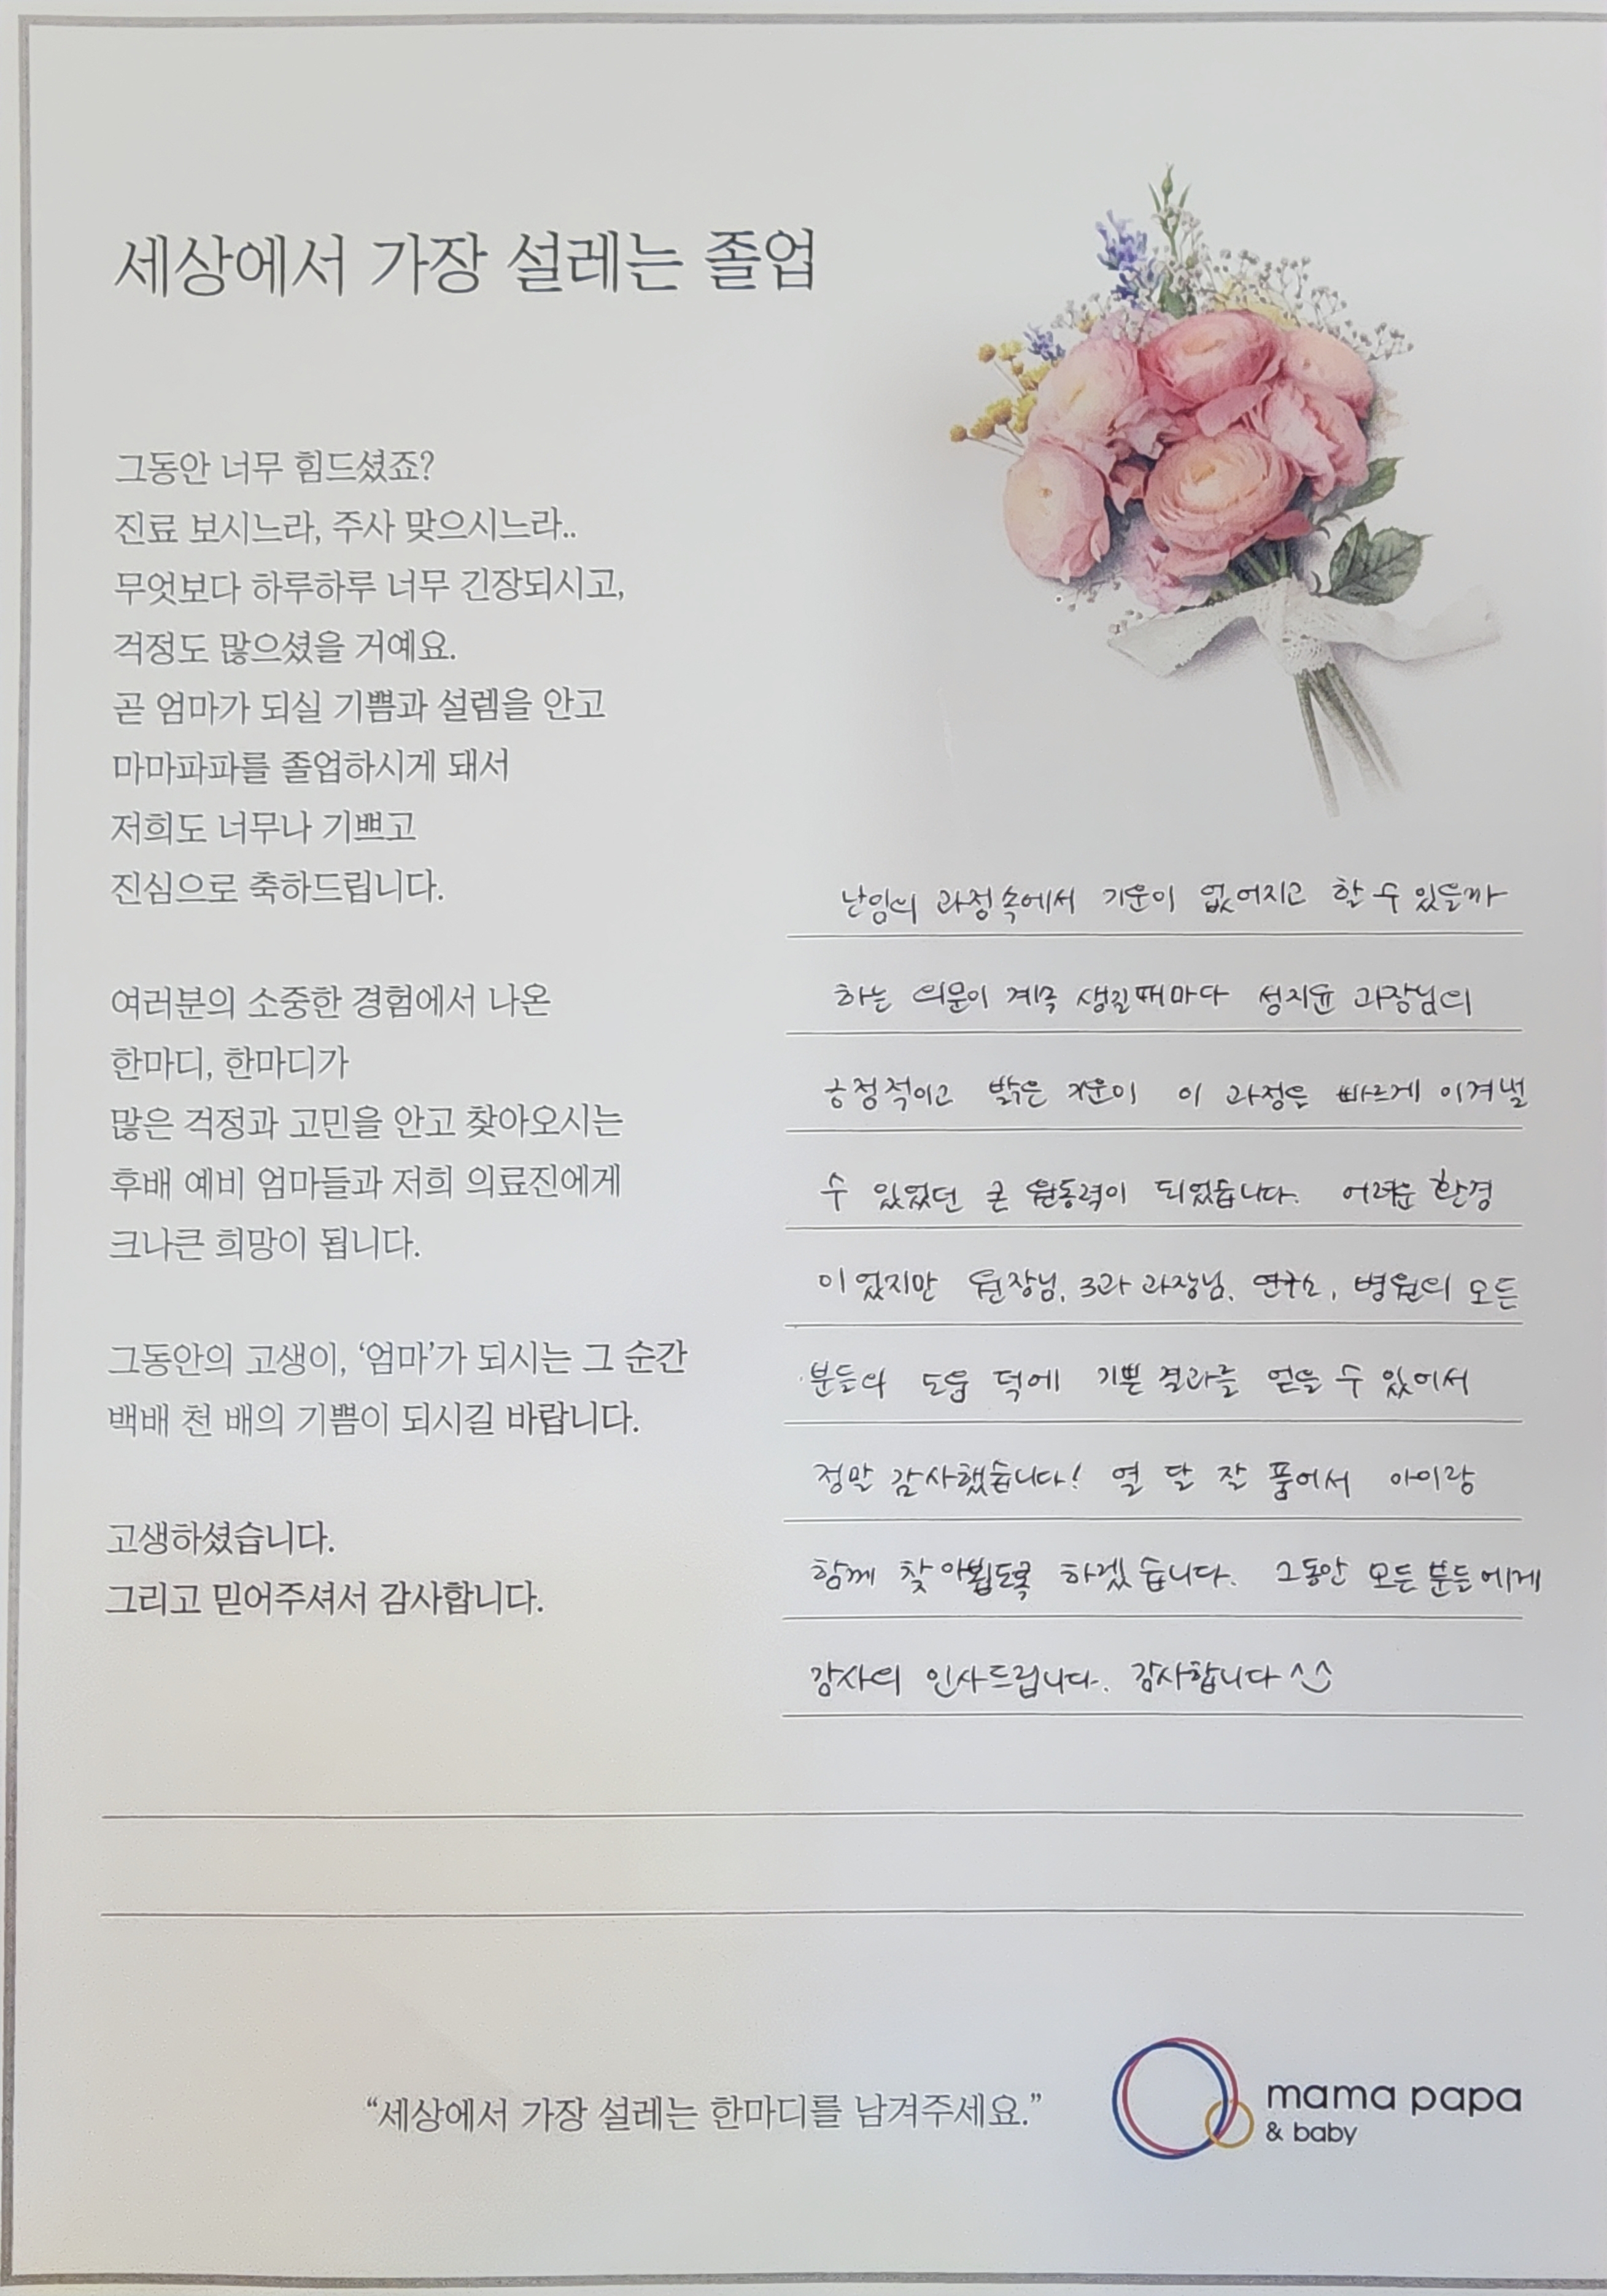 세상에서 가장 설레는 졸업
그동안 너무 힘드셨죠?
진료 보시느라, 주사 맞으시느라..
무엇보다 하루하루 너무 긴장되시고,
걱정도 많으셨을 거예요.
곧 엄마가 되실 기쁨과 설렘을 안고
마마파파를 졸업하시게 돼서
저희도 너무나 기쁘고
진심으로 축하드립니다.
여러분의 소중한 경험에서 나온
한마디, 한마디가
많은 걱정과 고민을 안고 찾아오시는
후배 예비 엄마들과 저희 의료진에게
크나큰 희망이 됩니다.
그동안의 고생이, ‘엄마’가 되시는 그 순간
백배 천 배의 기쁨이 되시길 바랍니다.
고생하셨습니다.
그리고 믿어주셔서 감사합니다.
난임의 과정속에서 기운이 없어지고 할 수 있을까
하는 의문이 계속 생길때마다 성지윤 과장님의
긍정적이고 밝은 기운이 이 과정을 빠르게 이겨낼
수 있었던 큰 원동력이 되었습니다. 어려운 환경
이었지만 원장님, 3과 과장님, 연구소, 병원의 모든
분들의 도움 덕에 기쁜 결과를 얻을 수 있어서
정말 감사했습니다! 열 달 잘 품어서 아이랑
함께 찾아뵙도록 하겠습니다. 그동안 모든 분들에게
감사의 인사드립니다. 감사합니다 ^^
“세상에서 가장 설레는 한마디를 남겨주세요.”
mama papa
& baby